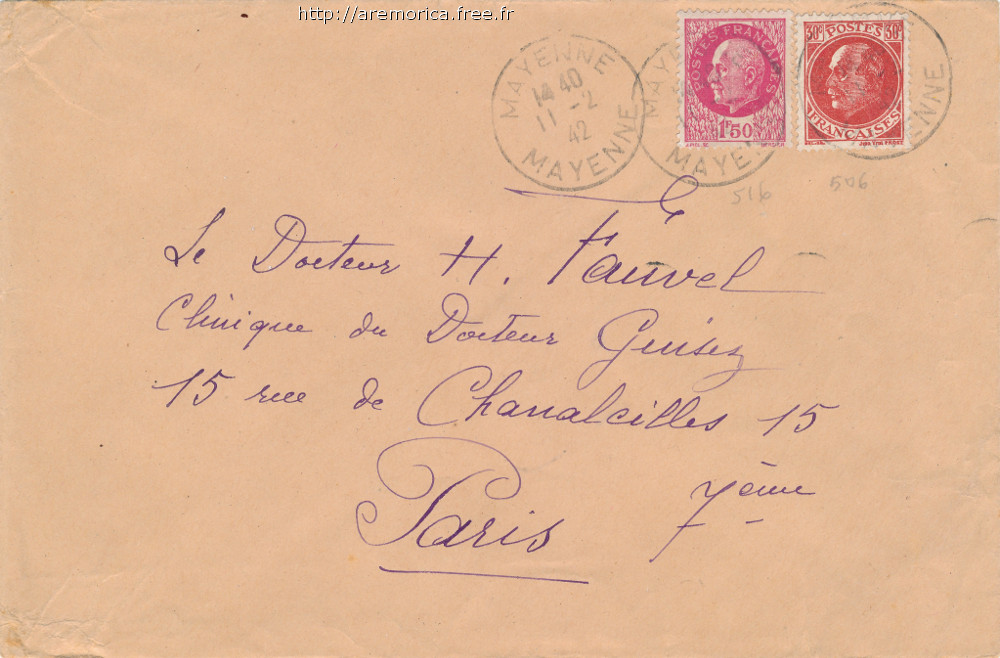 http://aremorica.free.fr
MAYENNE
14 40
11 -2
42
MAYENNE
MAYENNE
POSTES FRANÇAISES
1F50
30c POSTES 30c
FRANÇAISES
ENNE
516
506
Le Docteur H. Fauvel
Clinique du Docteur Guisez
15 rue de Chanalcilles 15
Paris 7ème